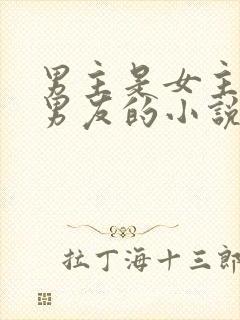 男主是女主
男友的小說
拉丁海十三郎